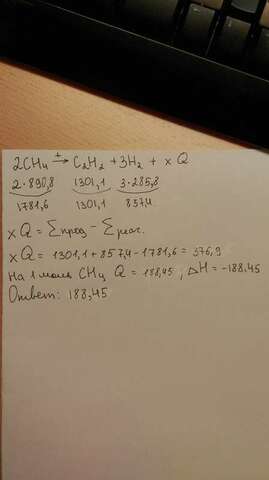 2CH₄ →ᵗ C₂H₂ + 3H₂ + xQ
2·890,8 1301,1 3·285,8
1781,6 1301,1 857,4
xQ = Σпрод − Σреаг.
xQ = 1301,1 + 857,4 − 1781,6 = 376,9
На 1 моль CH₄ Q = 188,45 ; ΔH = -188.45
Ответ: 188,45